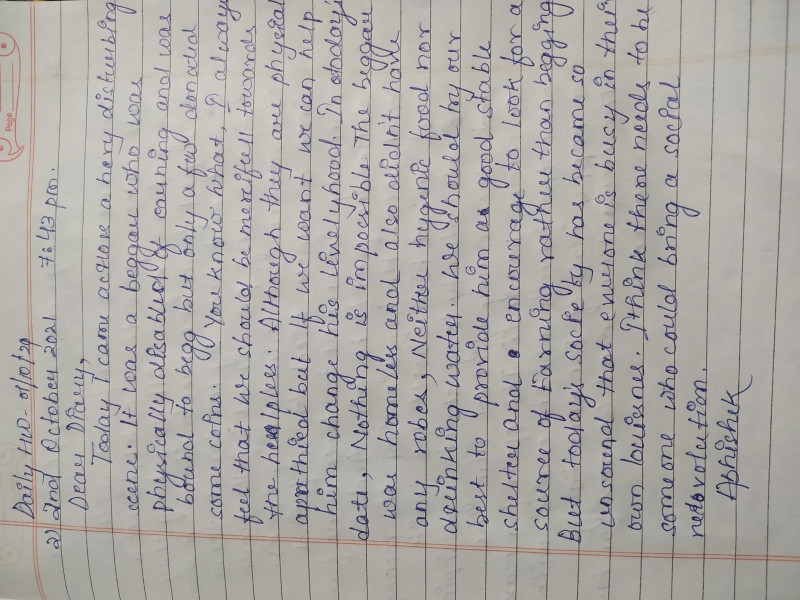 Page
Daily HW- 01/10/21
2) 2nd October 2021 7:43 pm.
Dear Diary,
Today I came across a very disturbing
scene. It was a beggar who was
physically disabled of earning and was
bound to begg but only a few donated
some coins. You know what, I always
feel that we should be mercifull towards
the helples. Although they are physical
but If we want we can help
him change his livelyhood. In today's
date, Nothing is impossible. The beggar
was homeless and also didn't have
any robes, Neither hygenic food nor
drinking water. We should try our
best to provide him a good stable
shelter and encourage to look for a
source of Earning rather than begging
But todays socie ty has became so
unsound that everyone is busy in their
own buisnes. I think there needs to be
someone who could bring a social
revolution.
Abhishek